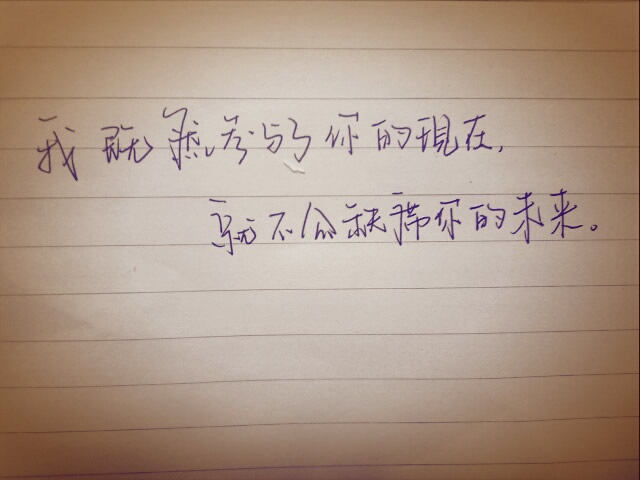 我既然参与了你的现在,
就不会缺席你的未来。